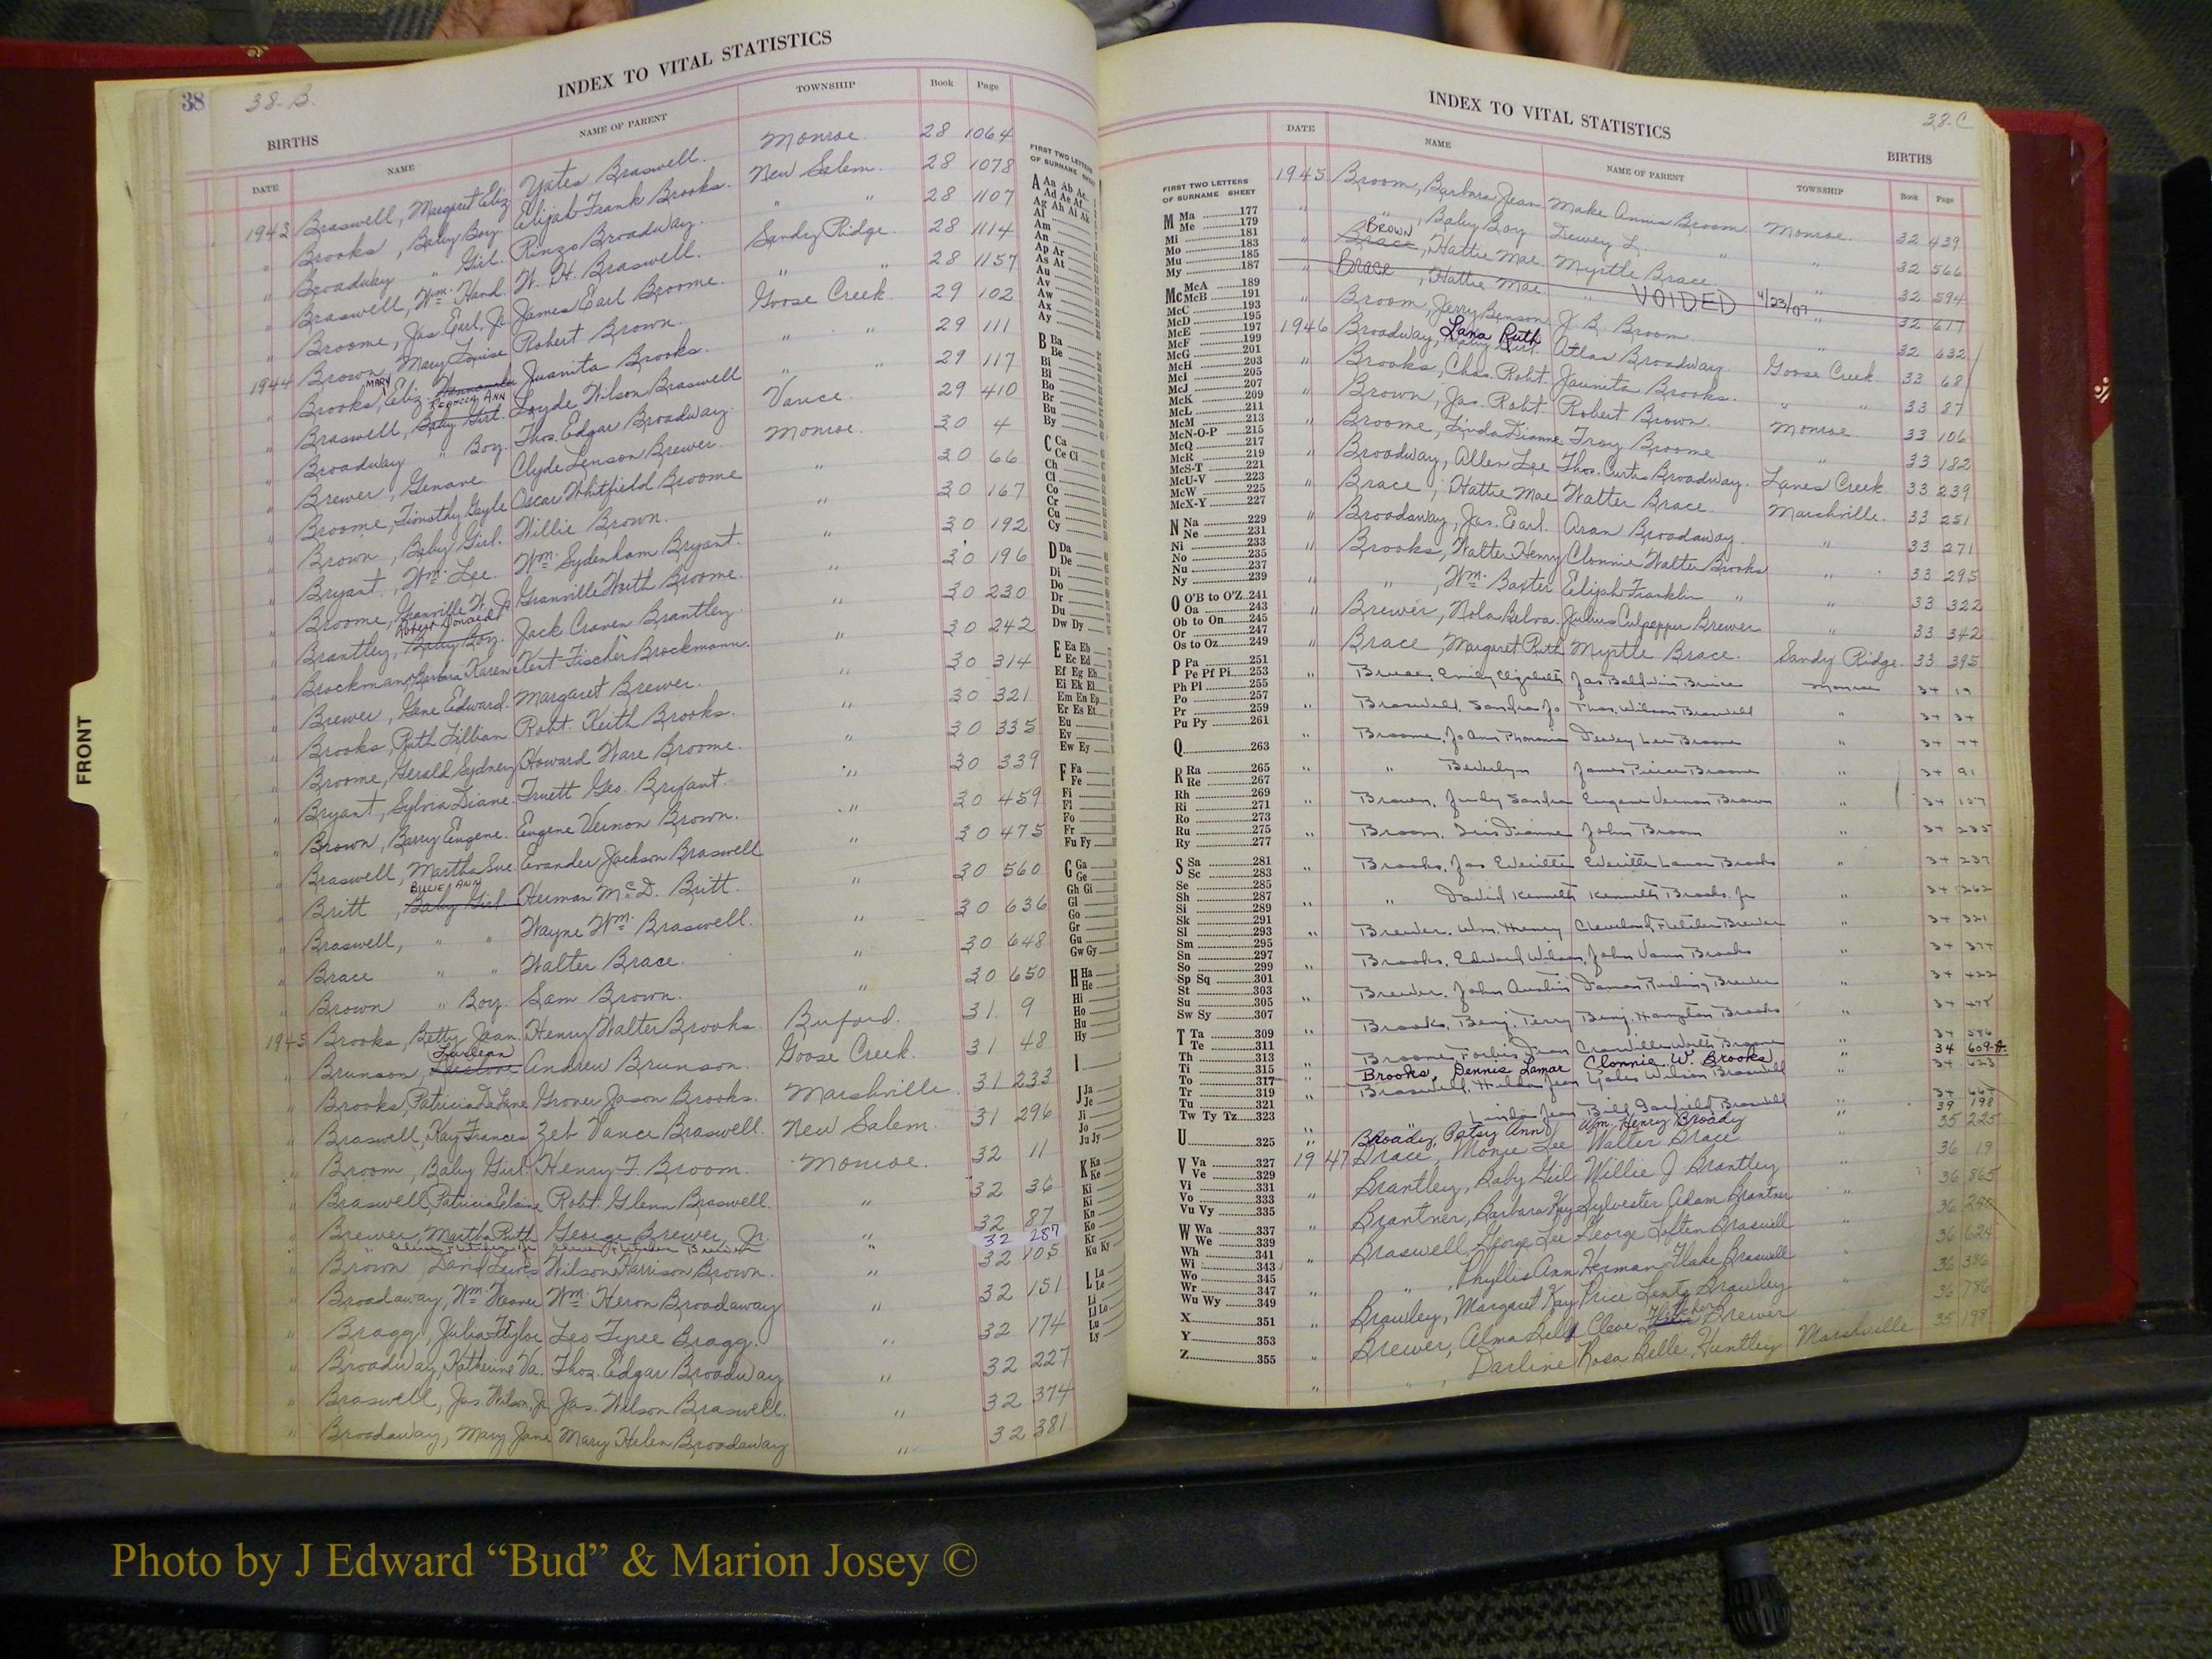 38
38-B.
INDEX TO VITAL STATISTICS
BIRTHS
DATE NAME NAME OF PARENT TOWNSHIP Book Page
1943 Braswell, Margaret Eliz. Yates Braswell. Monroe. 28 1064
" Brooks, Baby Boy. Elijah Frank Brooks. New Salem. 28 1078
" Broadway " Girl. Ringo Broadway. " " 28 1107
" Braswell, Wm. Hand. W. H. Braswell. Sandy Ridge. 28 1114
" Broome, Jas. Earl, Jr. James Earl Broome. " " 28 1157
" Brown, Mary Louise Robert Brown. Goose Creek. 29 102
1944 Brooks, MARY Eliz. Juanita Brooks. " " 29 111
" Braswell, REBECCA ANN Baby Girl. Loyde Wilson Braswell " " 29 117
" Broadway " Boy. Thos. Edgar Broadway. Vance. 29 410
" Brewer, Genave. Clyde Lenson Brewer. Monroe. 30 4
" Broome, Timothy Gayle Oscar Whitfield Broome " 30 66
" Brown, Baby Girl. Willie Brown. " 30 167
" Bryant, Wm. Lee. Wm. Sydenham Bryant. " 30 192
" Broome, Granville W. Jr. Granville Worth Broome. " 30 196
" Brantley, Robert Donald Baby Boy. Jack Craven Brantley. " 30 230
" Brockmann, Barbara Karen Kent Fischer Brockmann. " 30 242
" Brewer, Gene Edward. Margaret Brewer. " 30 314
" Brooks, Ruth Lillian Robt. Keith Brooks. " 30 321
" Broome, Gerald Sydney Howard Ware Broome. " 30 335
" Bryant, Sylvia Diane. Truett Geo. Bryant. " 30 339
" Brown, Barry Eugene. Eugene Vernon Brown. " 30 459
" Braswell, Martha Sue Evander Jackson Braswell " 30 475
" Britt, BILLIE ANN Baby Girl Herman McD. Britt. " 30 560
" Braswell, " " Wayne Wm. Braswell. " 30 636
" Brace " " Walter Brace. " 30 648
" Brown " Boy. Sam Brown. " 30 650
1945 Brooks, Betty Jean. Henry Walter Brooks. Buford. 31 9
" Brunson, Andrew Brunson. Goose Creek. 31 48
" Brooks, Patricia DeLane Grover Jason Brooks. Marshville. 31 233
" Braswell, Kay Frances Zeb Vance Braswell. New Salem. 31 296
" Broom, Baby Girl Henry F. Broom. Monroe. 32 11
" Braswell, Patricia Elaine Robt. Glenn Braswell. " 32 36
" Brewer, Martha Ruth George Brewer, Jr. " 32 87
" 32 287
" Brown, David Lewis Wilson Harrison Brown. " 32 105
" Broadaway, Wm. Heaver Wm. Heron Broadaway " 32 151
" Bragg, Julia Leo Tyree Bragg. " 32 174
" Broadway, Katherine Va. Thos. Edgar Broadway " 32 227
" Braswell, Jas. Wilson, Jr. Jas. Wilson Braswell. " 32 374
" Broadaway, Mary Jane Mary Helen Broadaway " 32 381
FIRST TWO LETTERS
OF SURNAME SHEET
A Aa Ab Ac
Ad Ae Af
Ag Ah Ai Ak
Al
Am
An
Ap Ar
As At
Au
Av
Aw
Ax
Ay
B Ba
Be
Bi
Bl
Bo
Br
Bu
By
C Ca
Ce Ci
Ch
Cl
Co
Cr
Cu
Cy
D Da
De
Di
Do
Dr
Du
Dw Dy
E Ea Eb
Ec Ed
Ef Eg Eh
Ei Ek El
Em En Ep
Er Es Et
Eu
Ev
Ew Ey
F Fa
Fe
Fi
Fl
Fo
Fr
Fu Fy
G Ga
Ge
Gh Gi
Gl
Go
Gr
Gu
Gw Gy
H Ha
He
Hi
Ho
Hu
Hy
I
J Ja
Je
Ji
Jo
Ju Jy
K Ka
Ke
Ki
Kl
Kn
Ko
Kr
Ku Ky
L La
Le
Li
Ll Lo
Lu
Ly
FRONT
38-C
INDEX TO VITAL STATISTICS
BIRTHS
DATE NAME NAME OF PARENT TOWNSHIP Book Page
FIRST TWO LETTERS
OF SURNAME SHEET
M Ma 177
Me 179
Mi 181
Mo 183
Mu 185
My 187
Mc McA 189
McB 191
McC 193
McD 195
McE 197
McF 199
McG 201
McH 203
McI 205
McJ 207
McK 209
McL 211
McM 213
McN-O-P 215
McQ 217
McR 219
McS-T 221
McU-V 223
McW 225
McX-Y 227
N Na 229
Ne 231
Ni 233
No 235
Nu 237
Ny 239
O O'B to O'Z 241
Oa 243
Ob to On 245
Or 247
Os to Oz 249
P Pa 251
Pe Pf Pi 253
Ph Pl 255
Po 257
Pr 259
Pu Py 261
Q 263
R Ra 265
Re 267
Rh 269
Ri 271
Ro 273
Ru 275
Ry 277
S Sa 281
Sc 283
Se 285
Sh 287
Si 289
Sk 291
Sl 293
Sm 295
Sn 297
So 299
Sp Sq 301
St 303
Su 305
Sw Sy 307
T Ta 309
Te 311
Th 313
Ti 315
To 317
Tr 319
Tu 321
Tw Ty Tz 323
U 325
V Va 327
Ve 329
Vi 331
Vo 333
Vu Vy 335
W Wa 337
We 339
Wh 341
Wi 343
Wo 345
Wr 347
Wu Wy 349
X 351
Y 353
Z 355
1945 Broom, Barbara Jean. Make Annis Broom Monroe. 32 439
" " , Baby Boy. Dewey L. " " 32 566
" BROWN Brace, Hattie Mae. Myrtle Brace. " 32 594
" Brace, Hattie Mae. " VOIDED 4/23/07 " 32 617
" Broom, Jerry Benson J. B. Broom. " 32 632
1946 Broadway, Lana Ruth Baby Girl. Atlas Broadway. Goose Creek. 33 68
" Brooks, Chas. Robt. Jaunita Brooks. " " 33 87
" Brown, Jas. Robt. Robert Brown. Monroe 33 106
" Broome, Linda Dianne Troy Broome " 33 182
" Broadway, Allen Lee Thos. Curtis Broadway. Lanes Creek 33 239
" Brace, Hattie Mae Walter Brace. Marshville. 33 251
" Broadaway, Jas. Earl. Aran Broadaway. " 33 271
" Brooks, Walter Henry Clonnie Walter Brooks " 33 295
" " , Wm. Baxter Elijah Franklin " " 33 322
" Brewer, Nola Belva. Julius Culpepper Brewer " 33 342
" Brace, Margaret Ruth Myrtle Brace. Sandy Ridge. 33 395
" Bruce, Emily Elizabeth Jas Baldwin Bruce Monroe 34 19
" Braswell, Sandra Jo Thos. Wilson Braswell " 34 34
" Broome, Jo Ann Dewey Lee Broome " 34 44
" " Beverlyn James Pierce Broome " 34 91
" Brown, Judy Sandra Eugene Vernon Brown " 34 157
" Broom, Iris Dianne John Broom " 34 235
" Brooks, Jas Everitte Everitte Lamar Brooks " 34 237
" " David Kenneth Kenneth Brooks, Jr " 34 262
" Brewer, Wm. Henry Cleveland Fletcher Brewer " 34 321
" Brooks, Edward Wilson, John Vann Brooks " 34 374
" Brewer, John Austin Damon Brewer " 34 422
" Brooks, Benj. Terry Benj. Hampton Brooks " 34 478
" Broome, Forbis Dean Granville Worth Broome " 34 586
" Brooks, Dennis Lamar Clonnie W. Brooks " 34 609-A
" Braswell, Hilda Jean Yates Wilson Braswell " 34 623
" Linda Jean Bill Garfield Braswell " 34
" Broady, Patsy Ann Wm. Henry Broady " 39 198
1947 Brace, Monie Lee Walter Brace " 35 225
" Brantley, Baby Girl Willie J Brantley " 36 19
" Brantner, Barbara Kay Sylvester Adam Brantner " 36 865
" Braswell, George Lee George Loften Braswell " 36
" " , Phyllis Ann Herman Flake Braswell " 36 624
" Brawley, Margaret Kay Price Lentz Brawley " 36 386
" Brewer, Alma Bell Cleve Fletcher Brewer " 36 786
" " , Darline Rosa Belle Huntley Marshville 35 198
Photo by J Edward “Bud” & Marion Josey ©